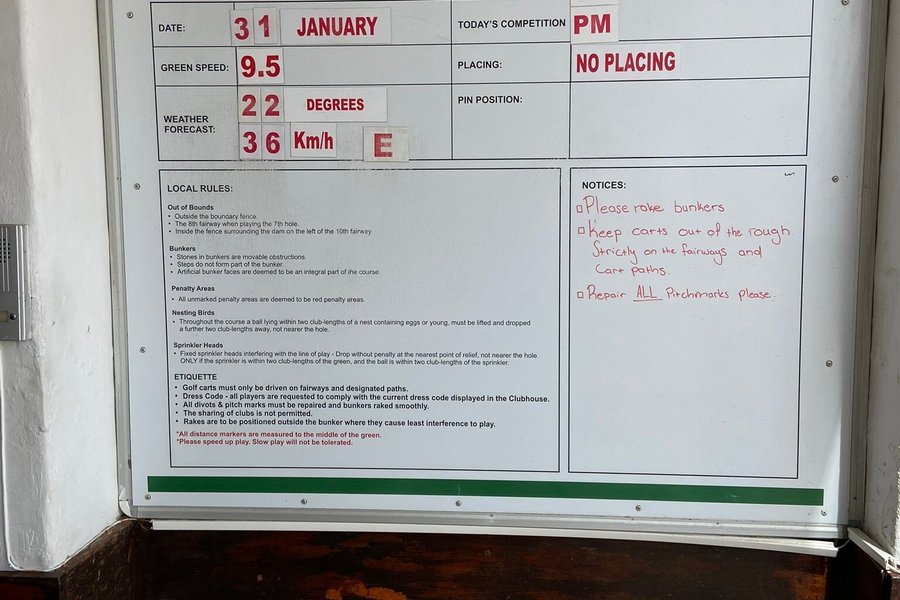 DATE: 31 JANUARY TODAY'S COMPETITION PM
GREEN SPEED: 9.5 PLACING: NO PLACING
WEATHER FORECAST: 22 DEGREES PIN POSITION:
36 Km/h E
LOCAL RULES:
Out of Bounds
• Outside the boundary fence.
• The 8th fairway when playing the 7th hole.
• Inside the fence surrounding the dam on the left of the 10th fairway
Bunkers
• Stones in bunkers are movable obstructions.
• Steps do not form part of the bunker.
• Artificial bunker faces are deemed to be an integral part of the course.
Penalty Areas
• All unmarked penalty areas are deemed to be red penalty areas.
Nesting Birds
• Throughout the course a ball lying within two club-lengths of a nest containing eggs or young, must be lifted and dropped
a further two club-lengths away, not nearer the hole.
Sprinkler Heads
• Fixed sprinkler heads interfering with the line of play - Drop without penalty at the nearest point of relief, not nearer the hole.
ONLY if the sprinkler is within two club-lengths of the green, and the ball is within two club-lengths of the sprinkler.
ETIQUETTE
• Golf carts must only be driven on fairways and designated paths.
• Dress Code - all players are requested to comply with the current dress code displayed in the Clubhouse.
• All divots & pitch marks must be repaired and bunkers raked smoothly.
• The sharing of clubs is not permitted.
• Rakes are to be positioned outside the bunker where they cause least interference to play.
*All distance markers are measured to the middle of the green.
*Please speed up play. Slow play will not be tolerated.
NOTICES:
Please rake bunkers
Keep carts out of the rough.
Strictly on the fairways and
Cart paths.
Repair ALL Pitchmarks please.